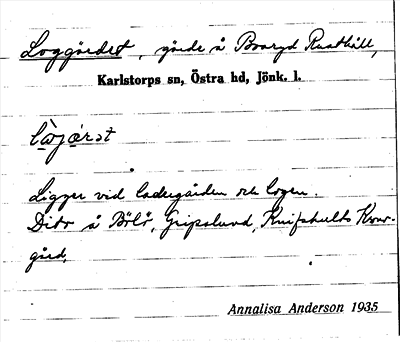 Loggärdet, gärde å Boaryd Rusthåll,
Karlstorps sn, Östra hd, Jönk. l.
Ligger vid ladugården och logen.
Dito å Bölö, Gripslund, Knifshults Kvar-
gärd,
Annalisa Anderson 1935